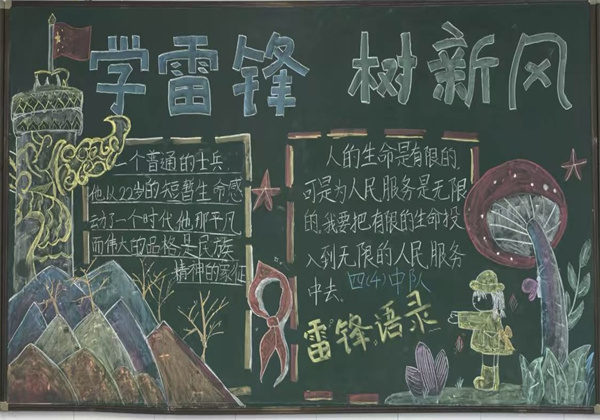 学雷锋 树新风
一个普通的士兵
他从22岁的短暂生命感
动了一个时代,他那平凡
而伟大的品格,是民族
精神的象征
人的生命是有限的,
可是为人民服务是无限
的,我要把有限的生命投
入到无限的人民服务
中去
四(4)中队
雷锋语录